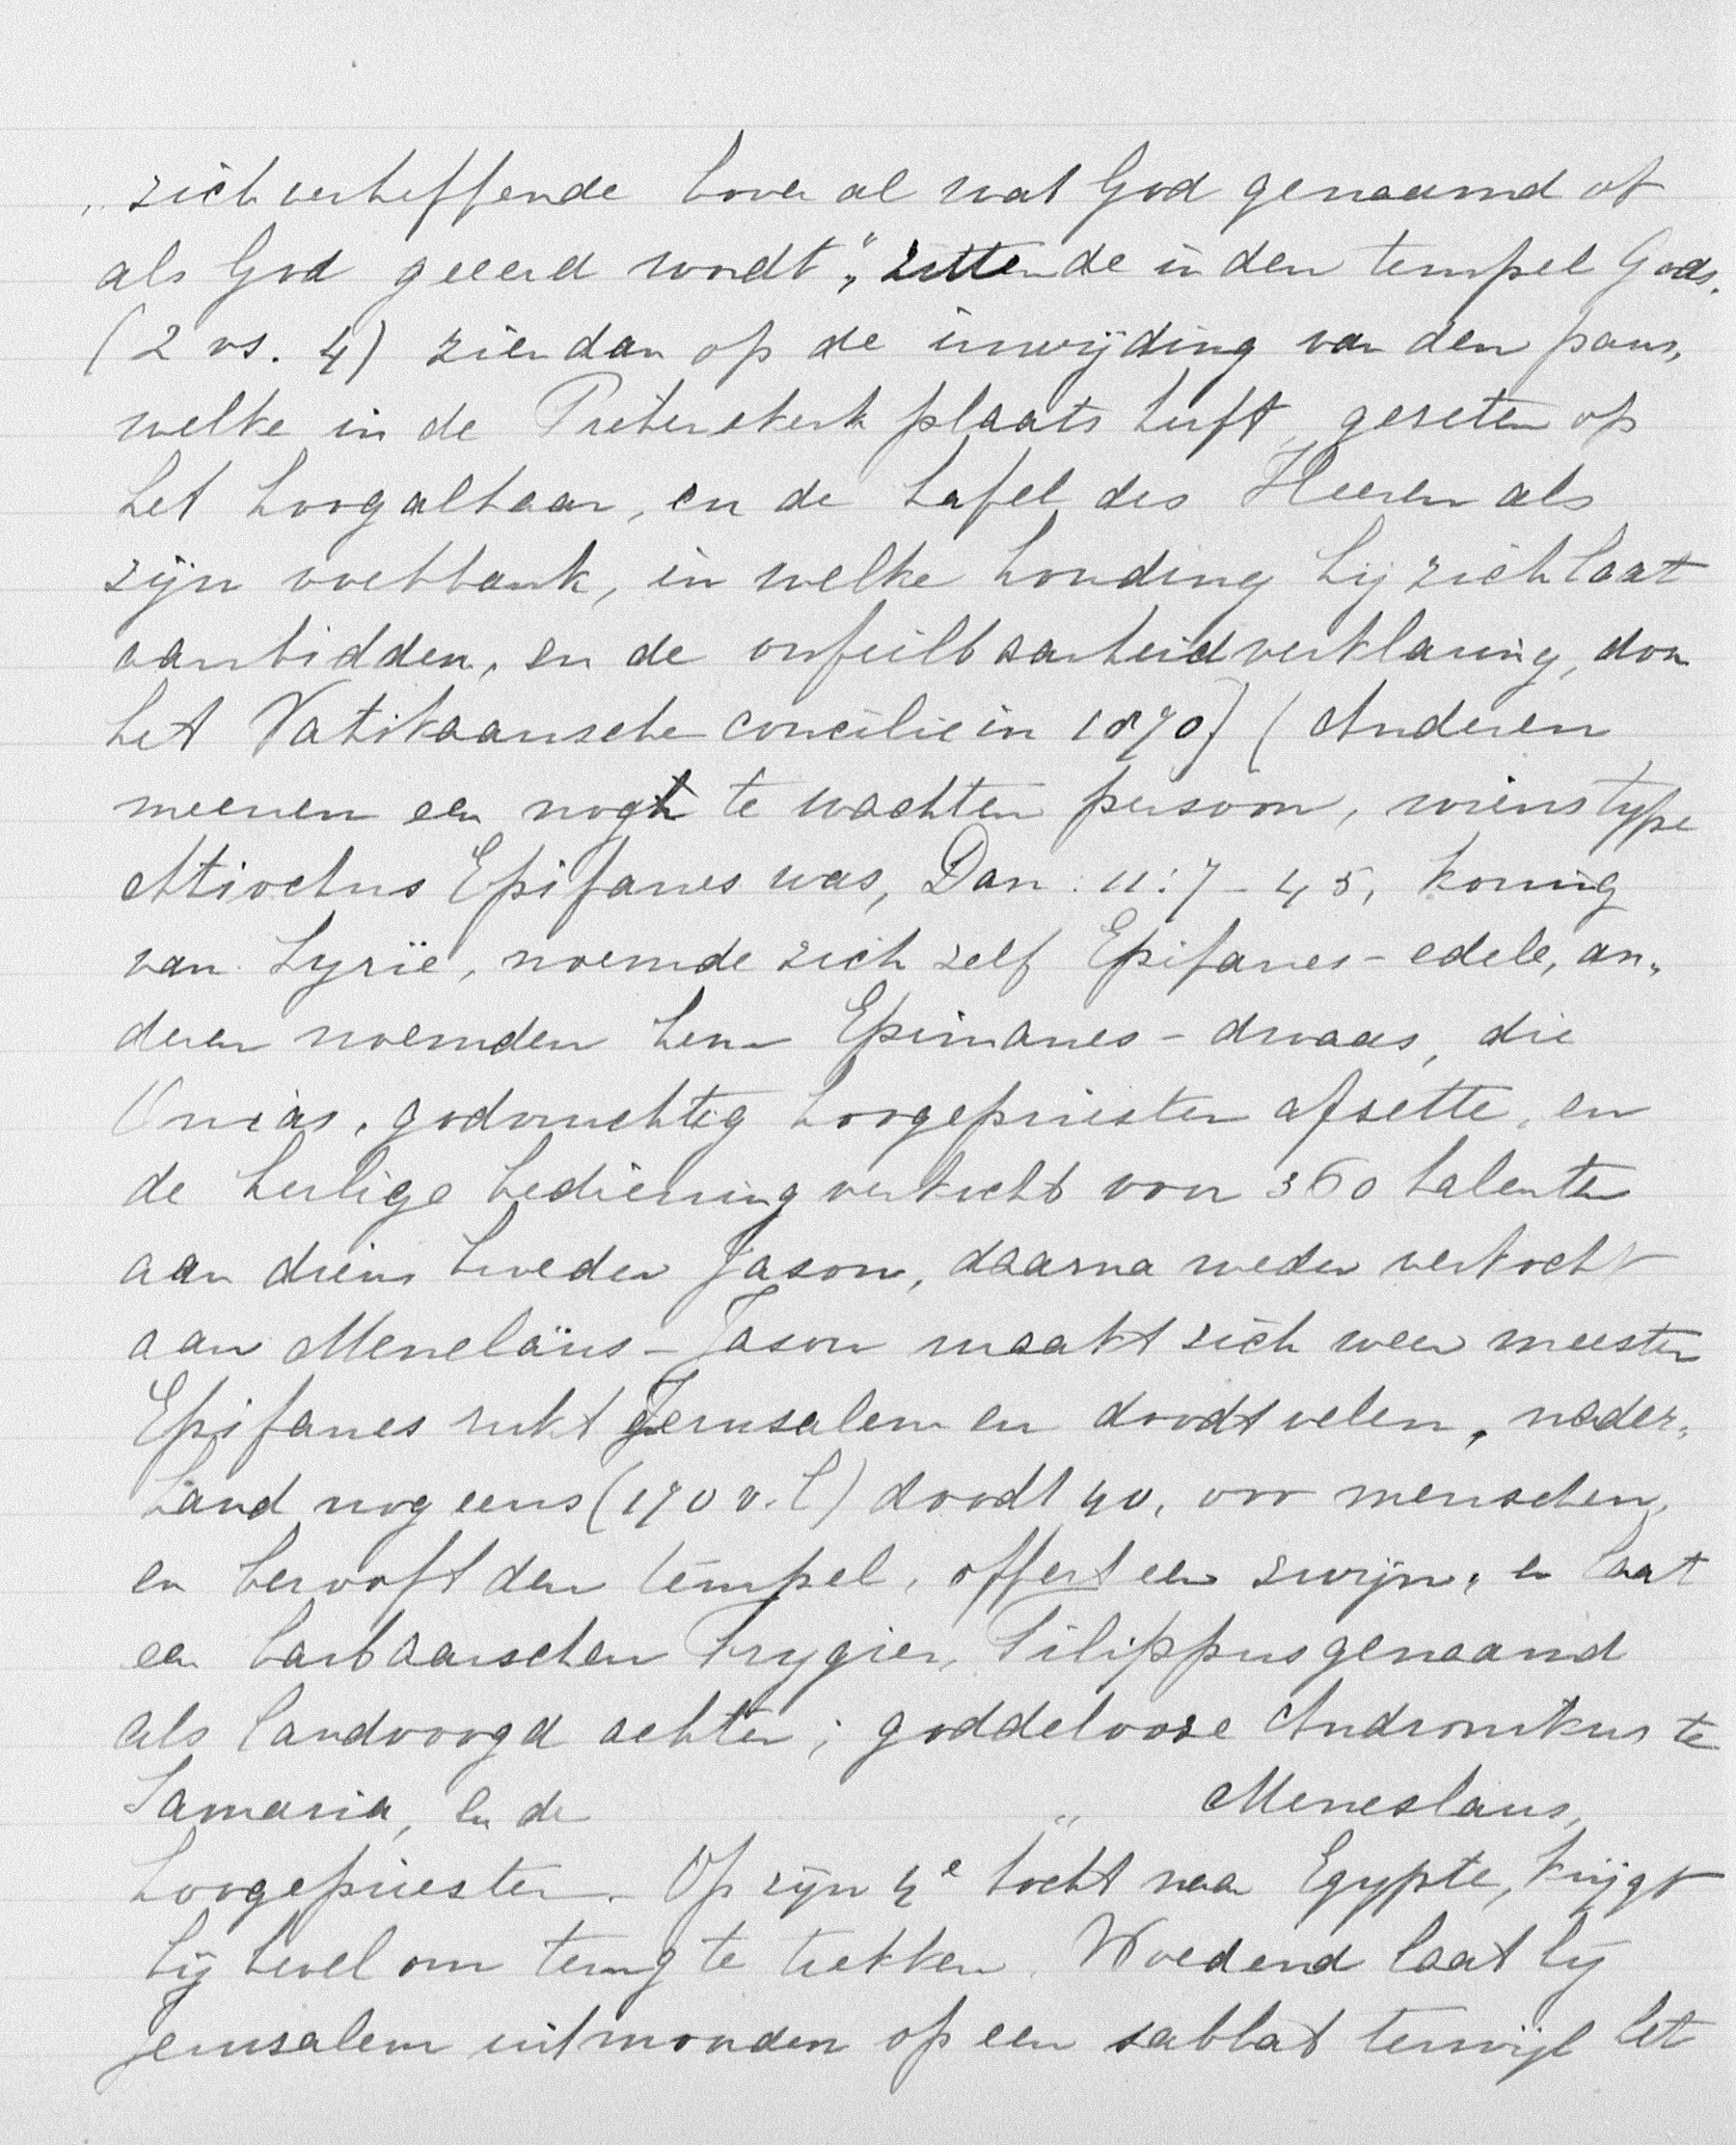 „zich verheffende boven al wat God genaamd of
als God geëerd wordt", zittende in den tempel Gods.
(2 vs. 4) zien dan op de inwijding van den paus,
welke in de Pieterskerk plaats heeft, gezeten op
het hoogaltaar, en de tafel des Heeren als
zijn voetbank, in welke houding hij zich laat
aanbidden, en de onfeilbaarheidverklaring, door
het Vatikaansche concilie in 1870) (Anderen
meenen een nog te wachten persoon, wiens type
Atiochus Epifanes was, Dan. 11:7-45, koning
van Syrië, noemde zich zelf Epifanes - edele, an„
deren noemden hem Epimanes - dwaas, die
Onias, godvruchtig hoogepriester afzette, en
de heilige bediening verkocht voor 360 talenten
aan diens broeder Jason, daarna weder verkocht
aan Menelaüs - Jason maakt zich weer meester
Epifanes rukt Jerusalem en doodt velen, nader„
hand nog eens (170 v. C) doodt 40,000 menschen,
en berooft den tempel, offert een zwijn, en laat
een barbaarschen Frygier, Filippus genaamd
als landvoogd achter; goddelooze Andronikus te
Samaria, en de „ Meneslaus,
hoogepriester. Op zijn 4e tocht naar Egypte, krijgt
hij bevel om terug te trekken. Woedend laat hij
Jerusalem uitmoorden op een sabbat terwijl het